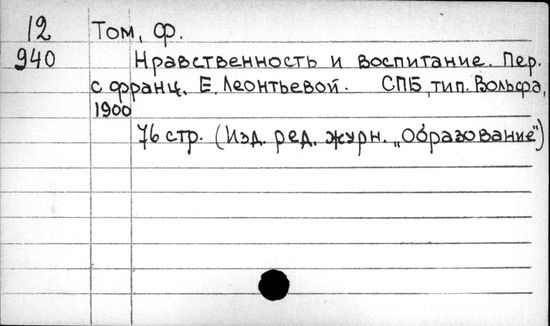 12 Том, Ф.
940 Нравственность и воспитание. Пер.
с франц. Е. Леонтьевой. СПБ, тип. Вольфа,
1900
76 стр. (Изд. ред. журн. „Образование")